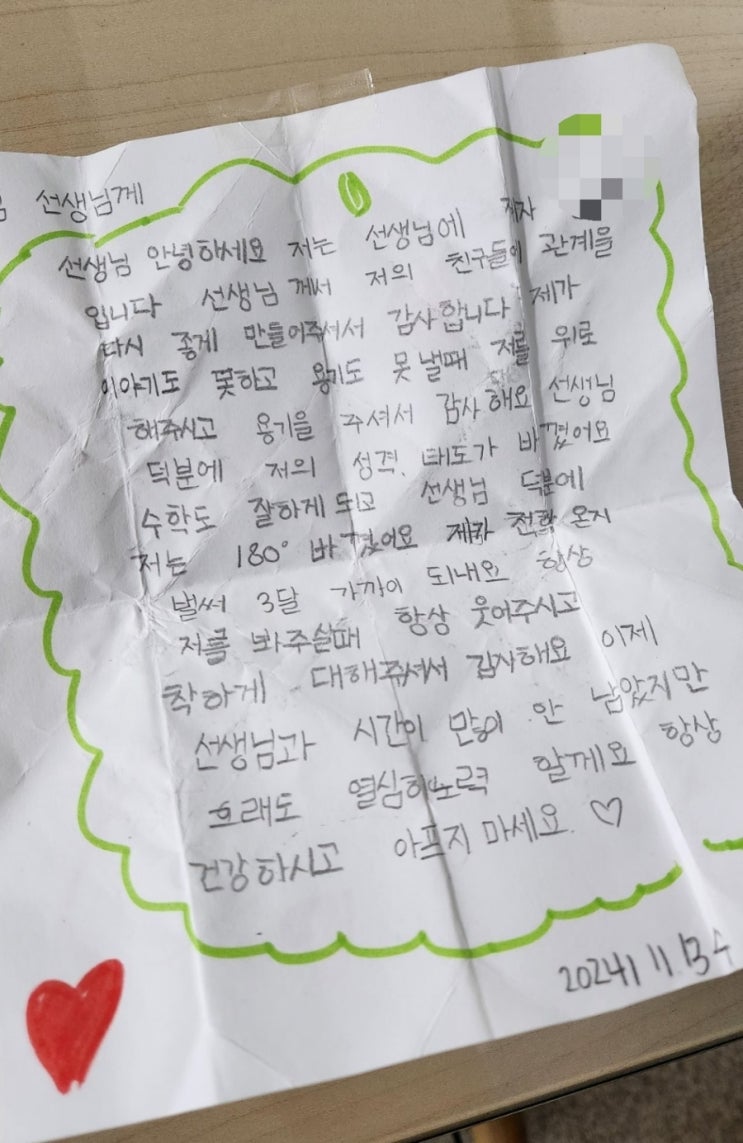 선생님께
선생님 안녕하세요 저는 선생님에 제자
입니다 선생님 께서 저의 친구들에 관계을
다시 좋게 만들어주셔서 감사합니다 제가
이야기도 못하고 용기도 못 낼때 저를 위로
해주시고 용기을 주셔서 감사해요 선생님
덕분에 저의 성격, 태도가 바꼈어요
수학도 잘하게 되고 선생님 덕분에
저는 180° 바꼈어요 제가 전학 온지
벌써 3달 가까이 되내요 항상
저를 봐주실때 항상 웃어주시고
착하게 대해주셔서 감사해요 이제
선생님과 시간이 많이 안 남았지만
흐래도 열심히노력 할께요 항상
건강하시고 아프지 마세요. ♡
2024 11.13 수